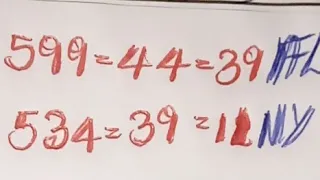 599=44=39 FL
534=39=11 NY